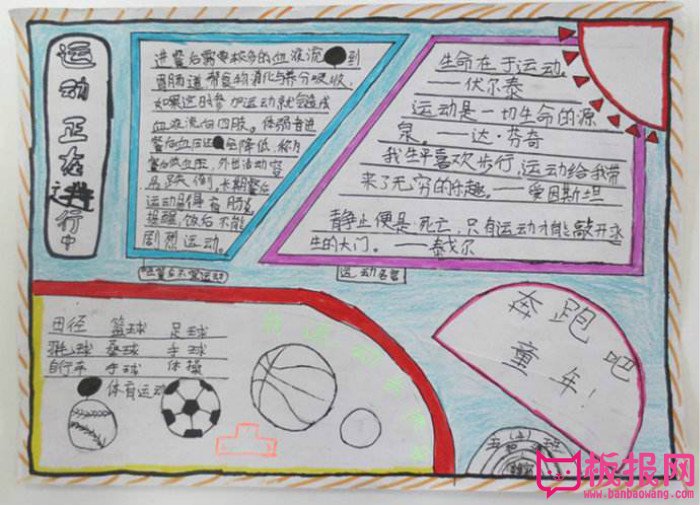 运动正在进行中
进餐后需要较多的血液流到
胃肠道,帮食物消化与养分吸收,
如果这时参加运动就会造成
血液流向四肢。体弱者进
餐后血压还会降低,称为
餐后低血压,外出活动容
易跌倒,长期餐后
运动易得盲肠炎
提醒:饭后不能
剧烈运动。
生命在于运动。
——伏尔泰
运动是一切生命的源
泉。——达·芬奇
我生平喜欢步行,运动给我带
来了无穷的乐趣。——爱因斯坦
静止便是死亡,只有运动才能敲开永
生的大门。——泰戈尔
运动名言
田径 篮球 足球
羽毛球 垒球 手球
自行车 手球 体操
体育运动
奔跑吧
童年!
板报网
www.banbaowang.com